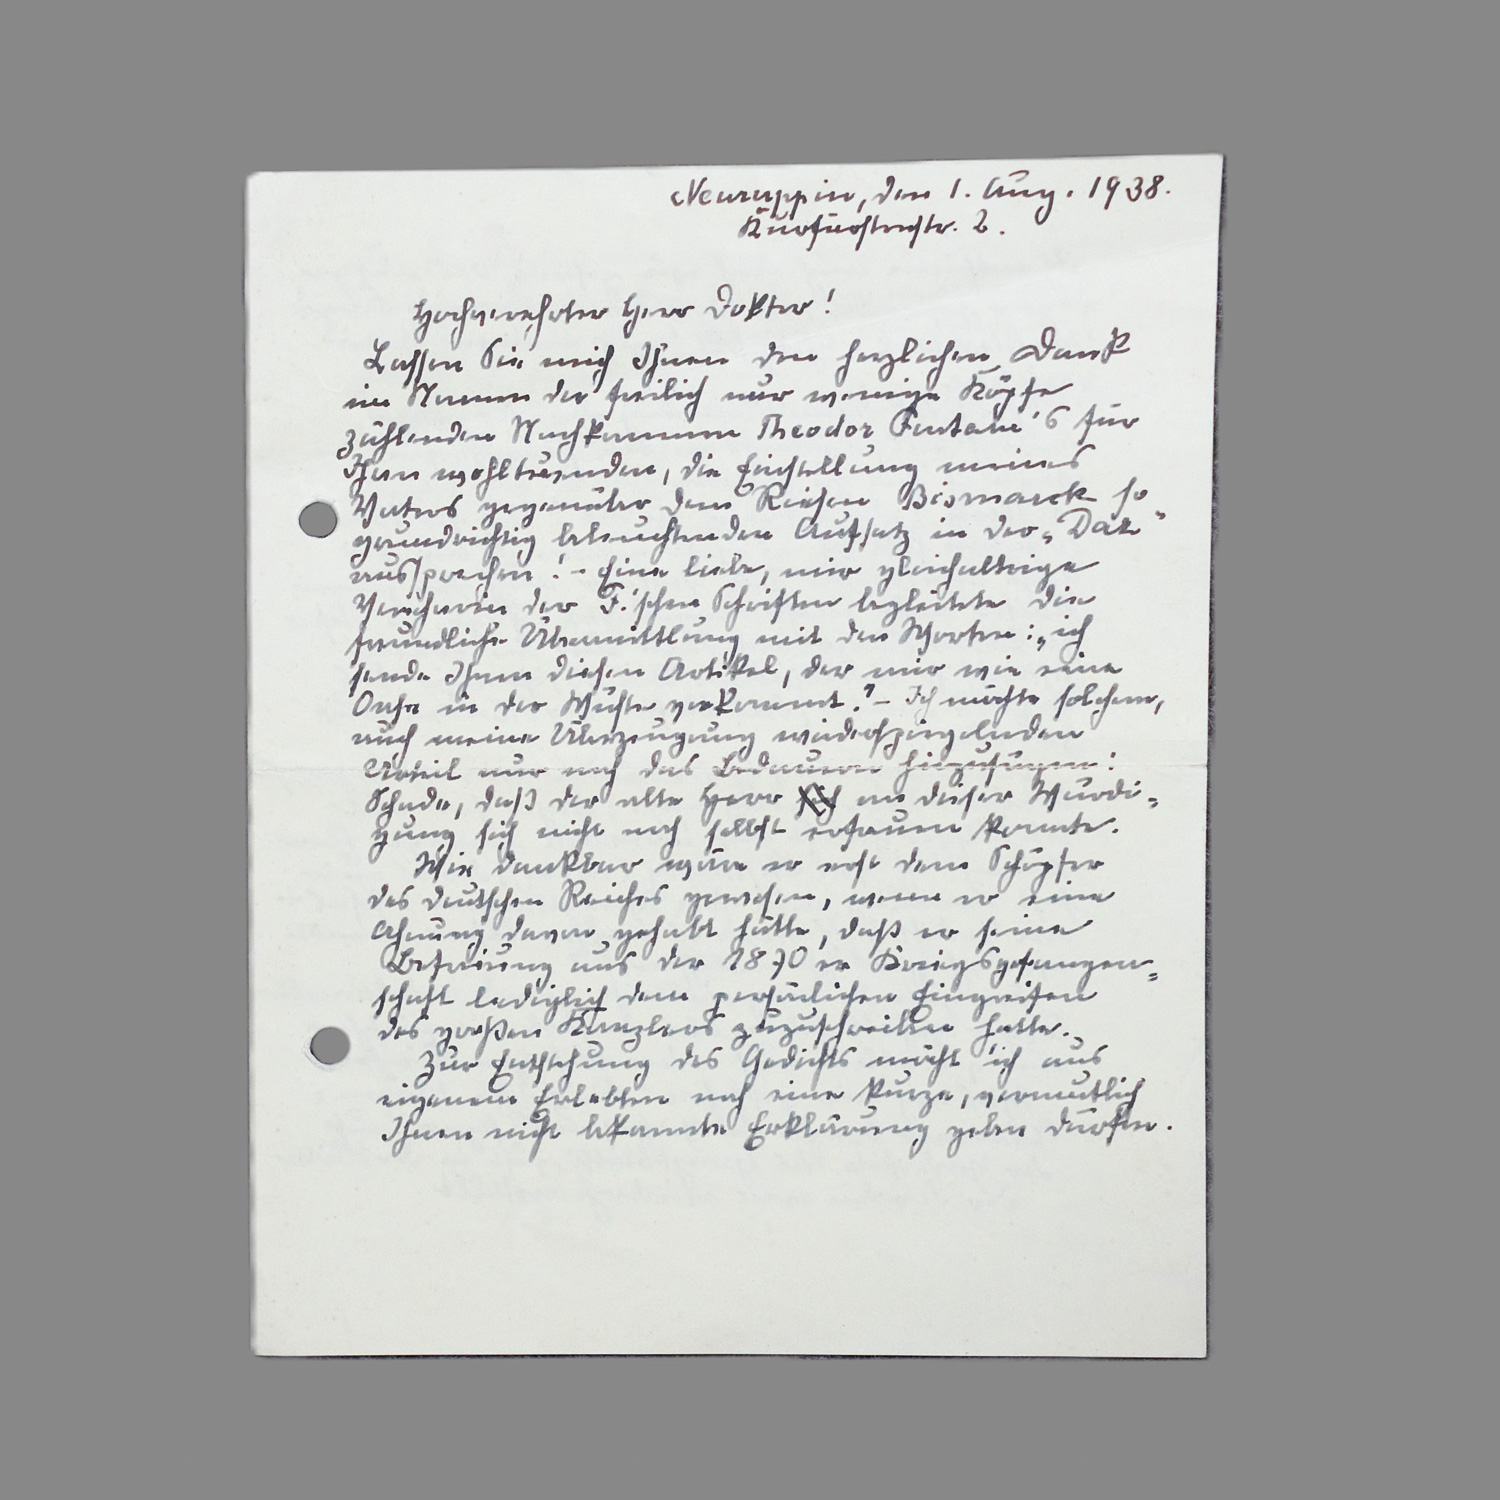 Neuruppin, den 1. Aug. 1938.
Kurfürstenstr. 2.
Hochverehrter Herr Doktor!
Lassen Sie mich Ihnen den herzlichen Dank
im Namen der freilich nur wenige Köpfe
zählenden Nachkommen Theodor Fontane's für
Ihren wohltuenden, die Einstellung meines
Vaters gegenüber dem Riesen Bismarck so
grundrichtig beleuchtenden Aufsatz in der „Daz"
aussprechen! - Eine liebe, mir gleichaltrige
Verehrerin der F.'schen Schriften begleitete die
freundliche Übermittlung mit den Worten: „ich
sende Ihnen diesen Artikel, der mir wie eine
Oase in der Wüste vorkommt." - Ich möchte solchem,
auch meine Überzeugung wiederspiegelnden
Urteil nur noch das Bedauern hinzufügen:
Schade, daß der alte Herr sich an dieser Würdi-
gung sich nicht noch selbst erfreuen konnte.
Wie dankbar wäre er erst dem Schöpfer
des deutschen Reiches gewesen, wenn er eine
Ahnung davon gehabt hätte, daß er seine
Befreiung aus der 1870 er Kriegsgefangen-
schaft lediglich dem persönlichen Eingreifen
des großen Kanzlers zuzuschreiben hatte.
Zur Entstehung des Gedichts möcht' ich aus
eigenem Erlebten noch eine kurze, vermutlich
Ihnen nicht bekannte Erklärung geben dürfen.